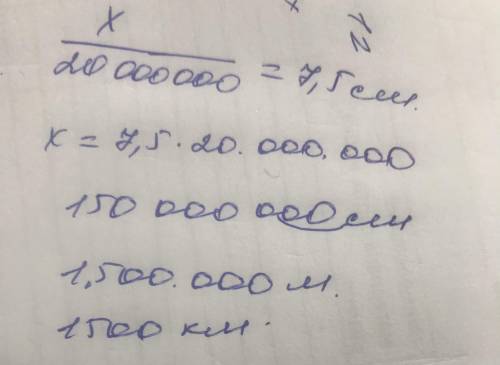 x
20 000 000 = 7,5 см.
x = 7,5 · 20.000.000
150 000 000 см
1,500.000 м.
1500 км.